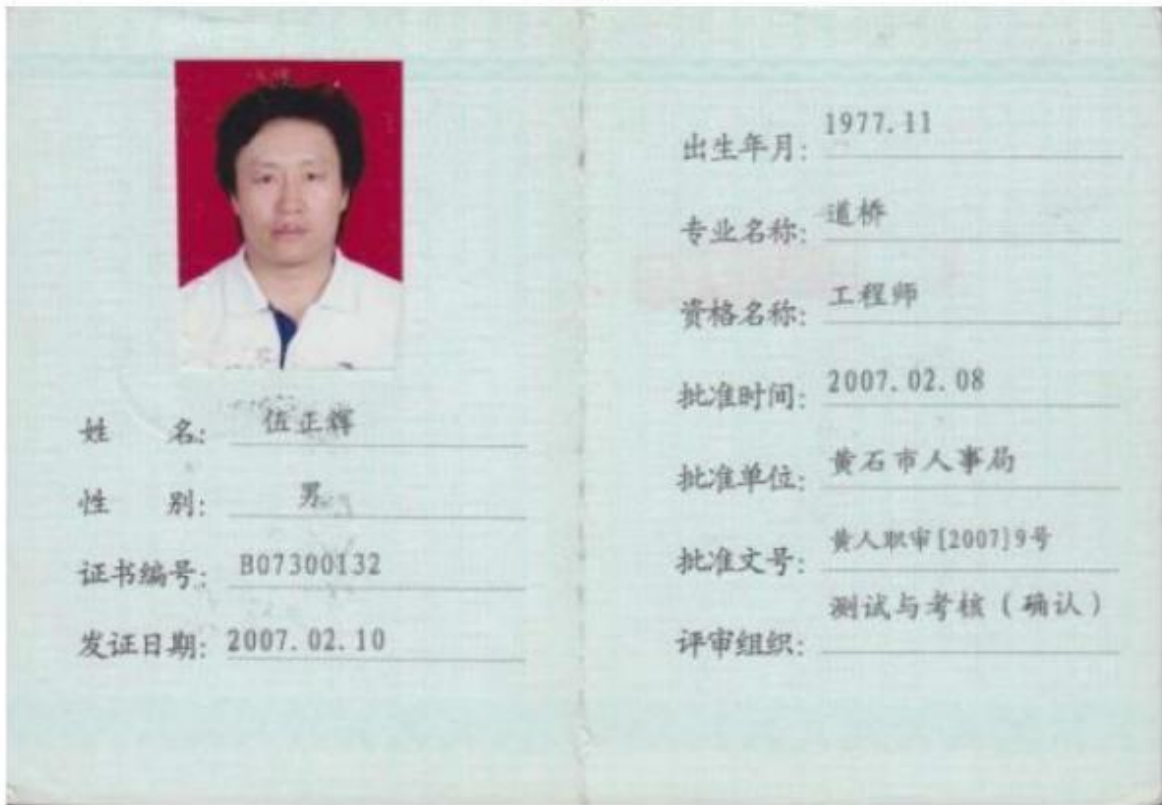 姓 名: 伍正辉
性 别: 男
证书编号: B07300132
发证日期: 2007.02.10
出生年月: 1977.11
专业名称: 道桥
资格名称: 工程师
批准时间: 2007.02.08
批准单位: 黄石市人事局
批准文号: 黄人职审[2007]9号
评审组织: 测试与考核（确认）